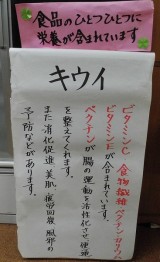 食品のひとつひとつに
栄養が含まれています
キウイ
ビタミンC 食物繊維 ペクチン カリウム
ビタミンEが含まれています。
ペクチンが腸の運動を活性化させ便通
を整えてくれます。
また消化促進 美肌、疲労回復 風邪の
予防などがあります。